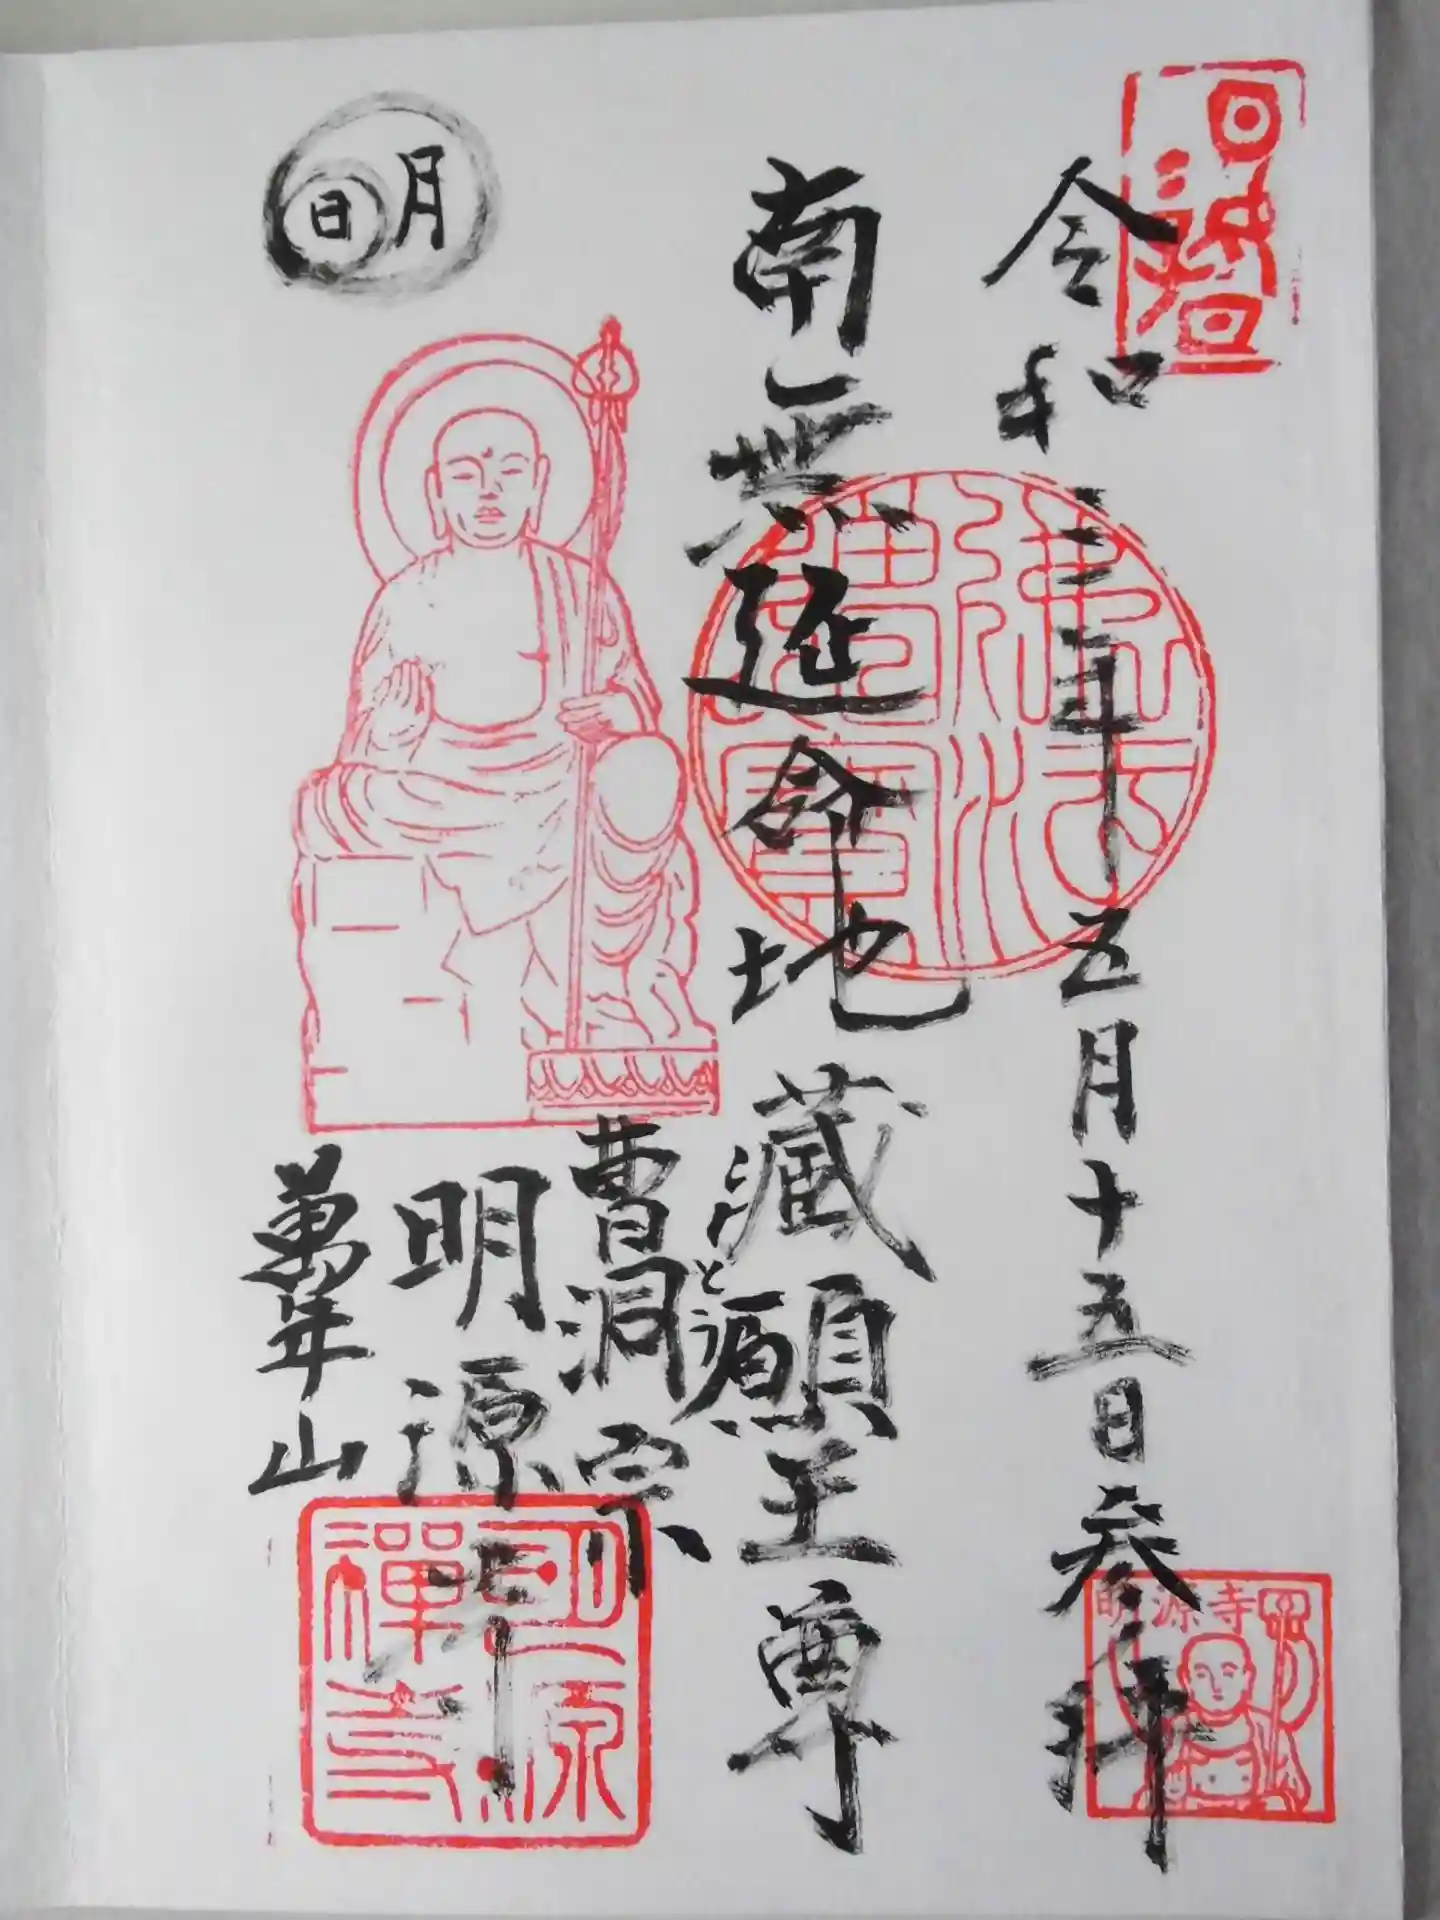 令和三年五月十五日参拝
南無延命地藏願王尊
曹洞宗
明源寺
萬年山
日月
佛法僧寶
明源禅寺
明源寺